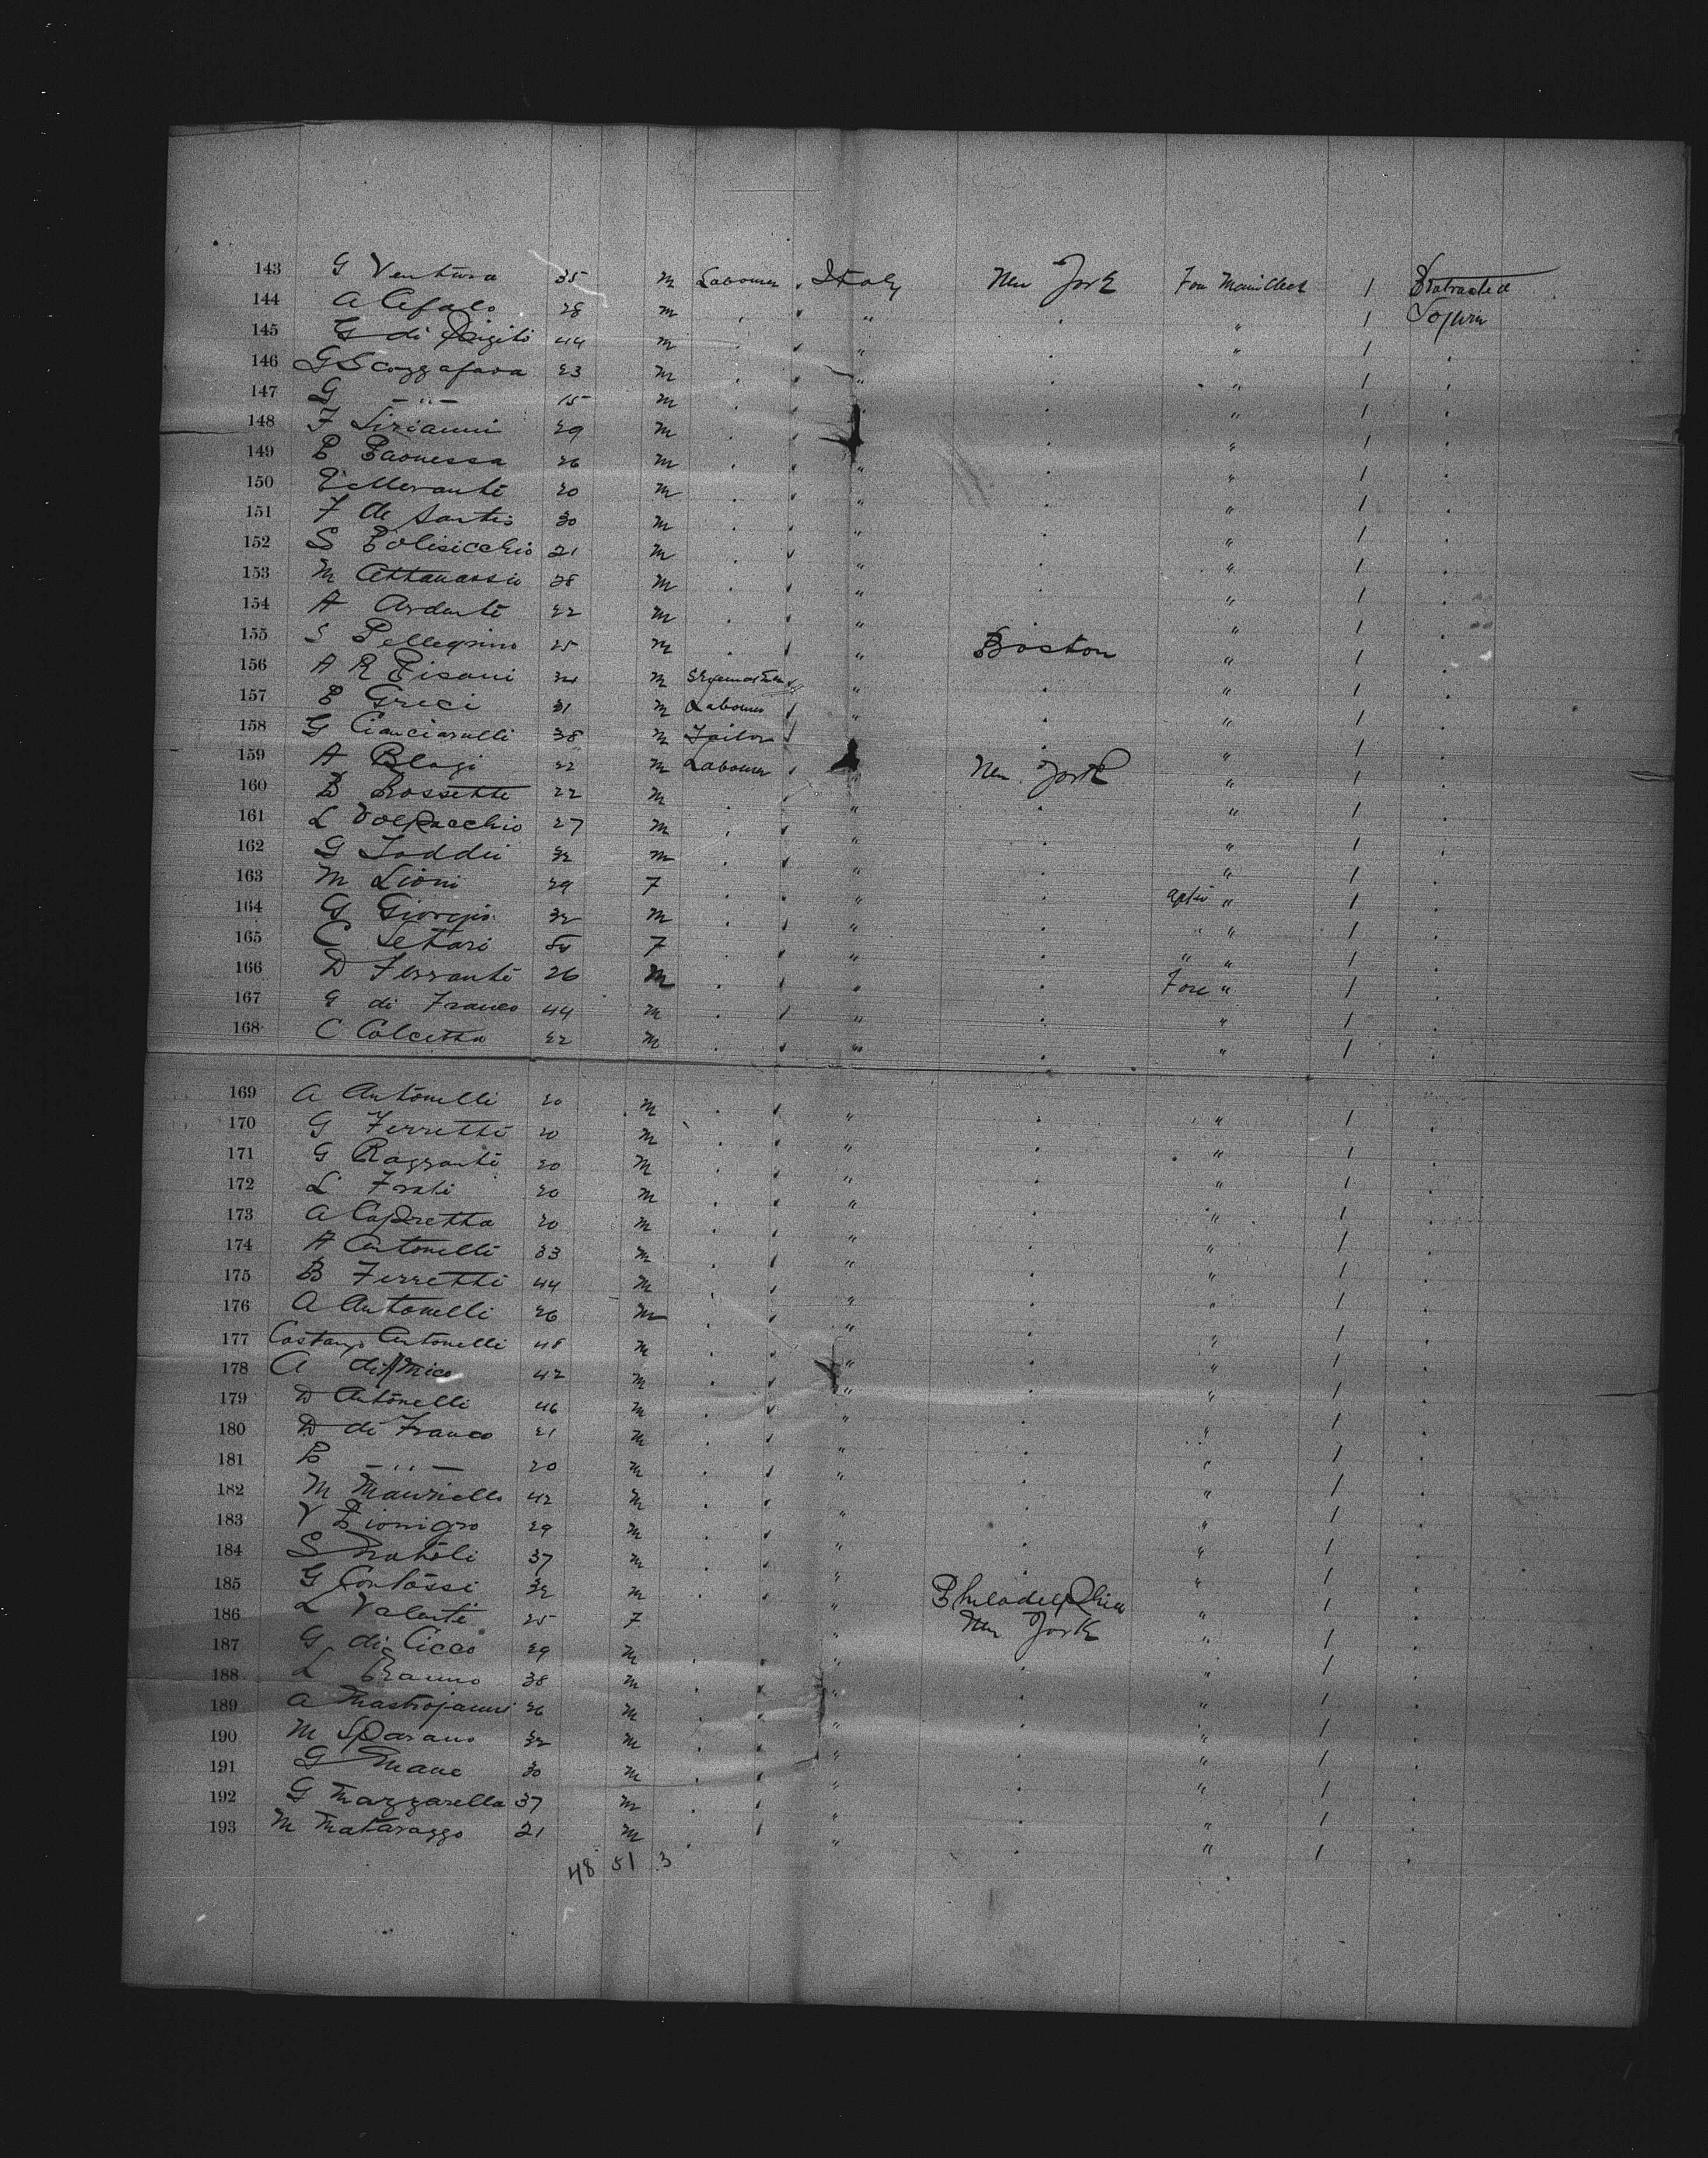 143 G Ventura 35 m Labourer Italy New York Fore Main Deck 1 Protracted
144 A Cefalo 28 m " " 1 Sojurn
145 G di 44 m " " 1
146 G Scozzafava 23 m " " 1
147 G — " — 15 m " " 1
148 F Sirianni 29 m " 1
149 P Paonessa 26 m " " 1
150 Merante 20 m " " 1
151 F de Santis 30 m " " 1
152 S Polisicchio 21 m " " 1
153 M Attanassio 28 m " " 1
154 A Ardente 22 m " " 1
155 S Pellegrino 25 m " Boston " 1
156 A R Pisani m " " 1
157 P Greci 31 m Labourer " " 1
158 G Cianciarulli 38 m Tailor " 1
159 A Blagi 22 m Labourer New York " 1
160 B Rossette 22 m " " 1
161 L Volpacchio 27 m " " 1
162 G Taddei 32 m " " 1
163 M Lioni 29 F " " 1
164 G Giorgio 32 m " " 1
165 C Setari F " " " 1
166 D Ferrante 26 m " Fore " 1
167 G di Franco 44 m " " 1
168 C Calcetta 22 m " " 1
169 A Antonelli 20 m " " 1
170 G Ferretti 20 m " " 1
171 G Razzante 20 m " " 1
172 L Frati 20 m " " 1
173 A Capretta 20 m " " 1
174 A Antonelli 33 m " 1
175 B Ferretti 44 m " " 1
176 A Antonelli 26 m " " 1
177 Costanzo Antonelli 48 m " " 1
178 A di Amico 42 m " " 1
179 D Antonelli 46 m " " 1
180 D di Franco 21 m " " 1
181 P — " — 20 m " " 1
182 M Mauriello 42 m " " 1
183 V 29 m " " 1
184 S Natoli 37 m " " 1
185 G 32 m " Philadelphia " 1
186 L Valente 25 F " New York " 1
187 G di Cicco 29 m " " 1
188 L 38 m " " 1
189 A Mastrojanni 26 m " " 1
190 M Sparano 32 m " " 1
191 G 30 m " " 1
192 G Mazzarella 37 m " " 1
193 M Matarazzo 21 m " " 1
48 51 3